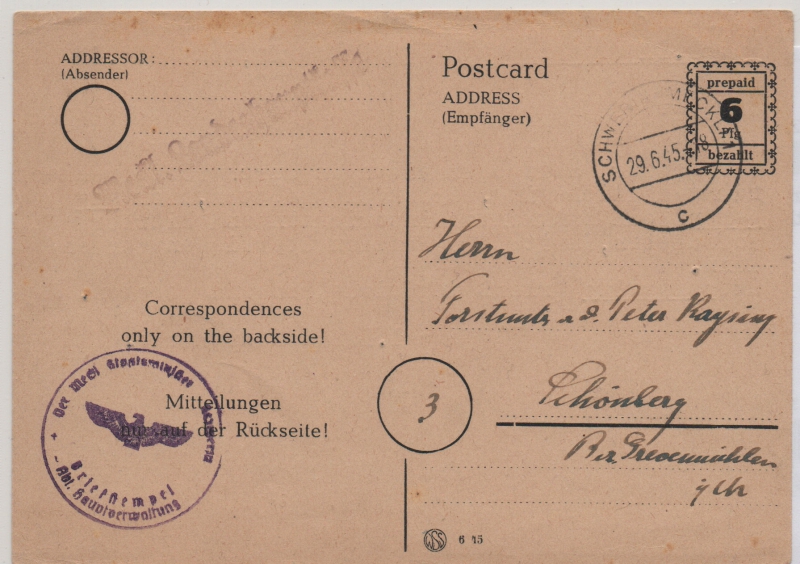 ADDRESSOR :
(Absender)
Correspondences
only on the backside!
Mitteilungen
nur auf der Rückseite!
Der Meckl Staatsminister Schwerin
Briefstempel
- Abt. Hauptverwaltung
Postcard
ADDRESS
(Empfänger)
prepaid
6
Pfg
bezahlt
SCHW MECKL 1
29.6.45. 18
c
Herrn
Peter
3
Schönberg
Bez. Grevesmühlen
6 45